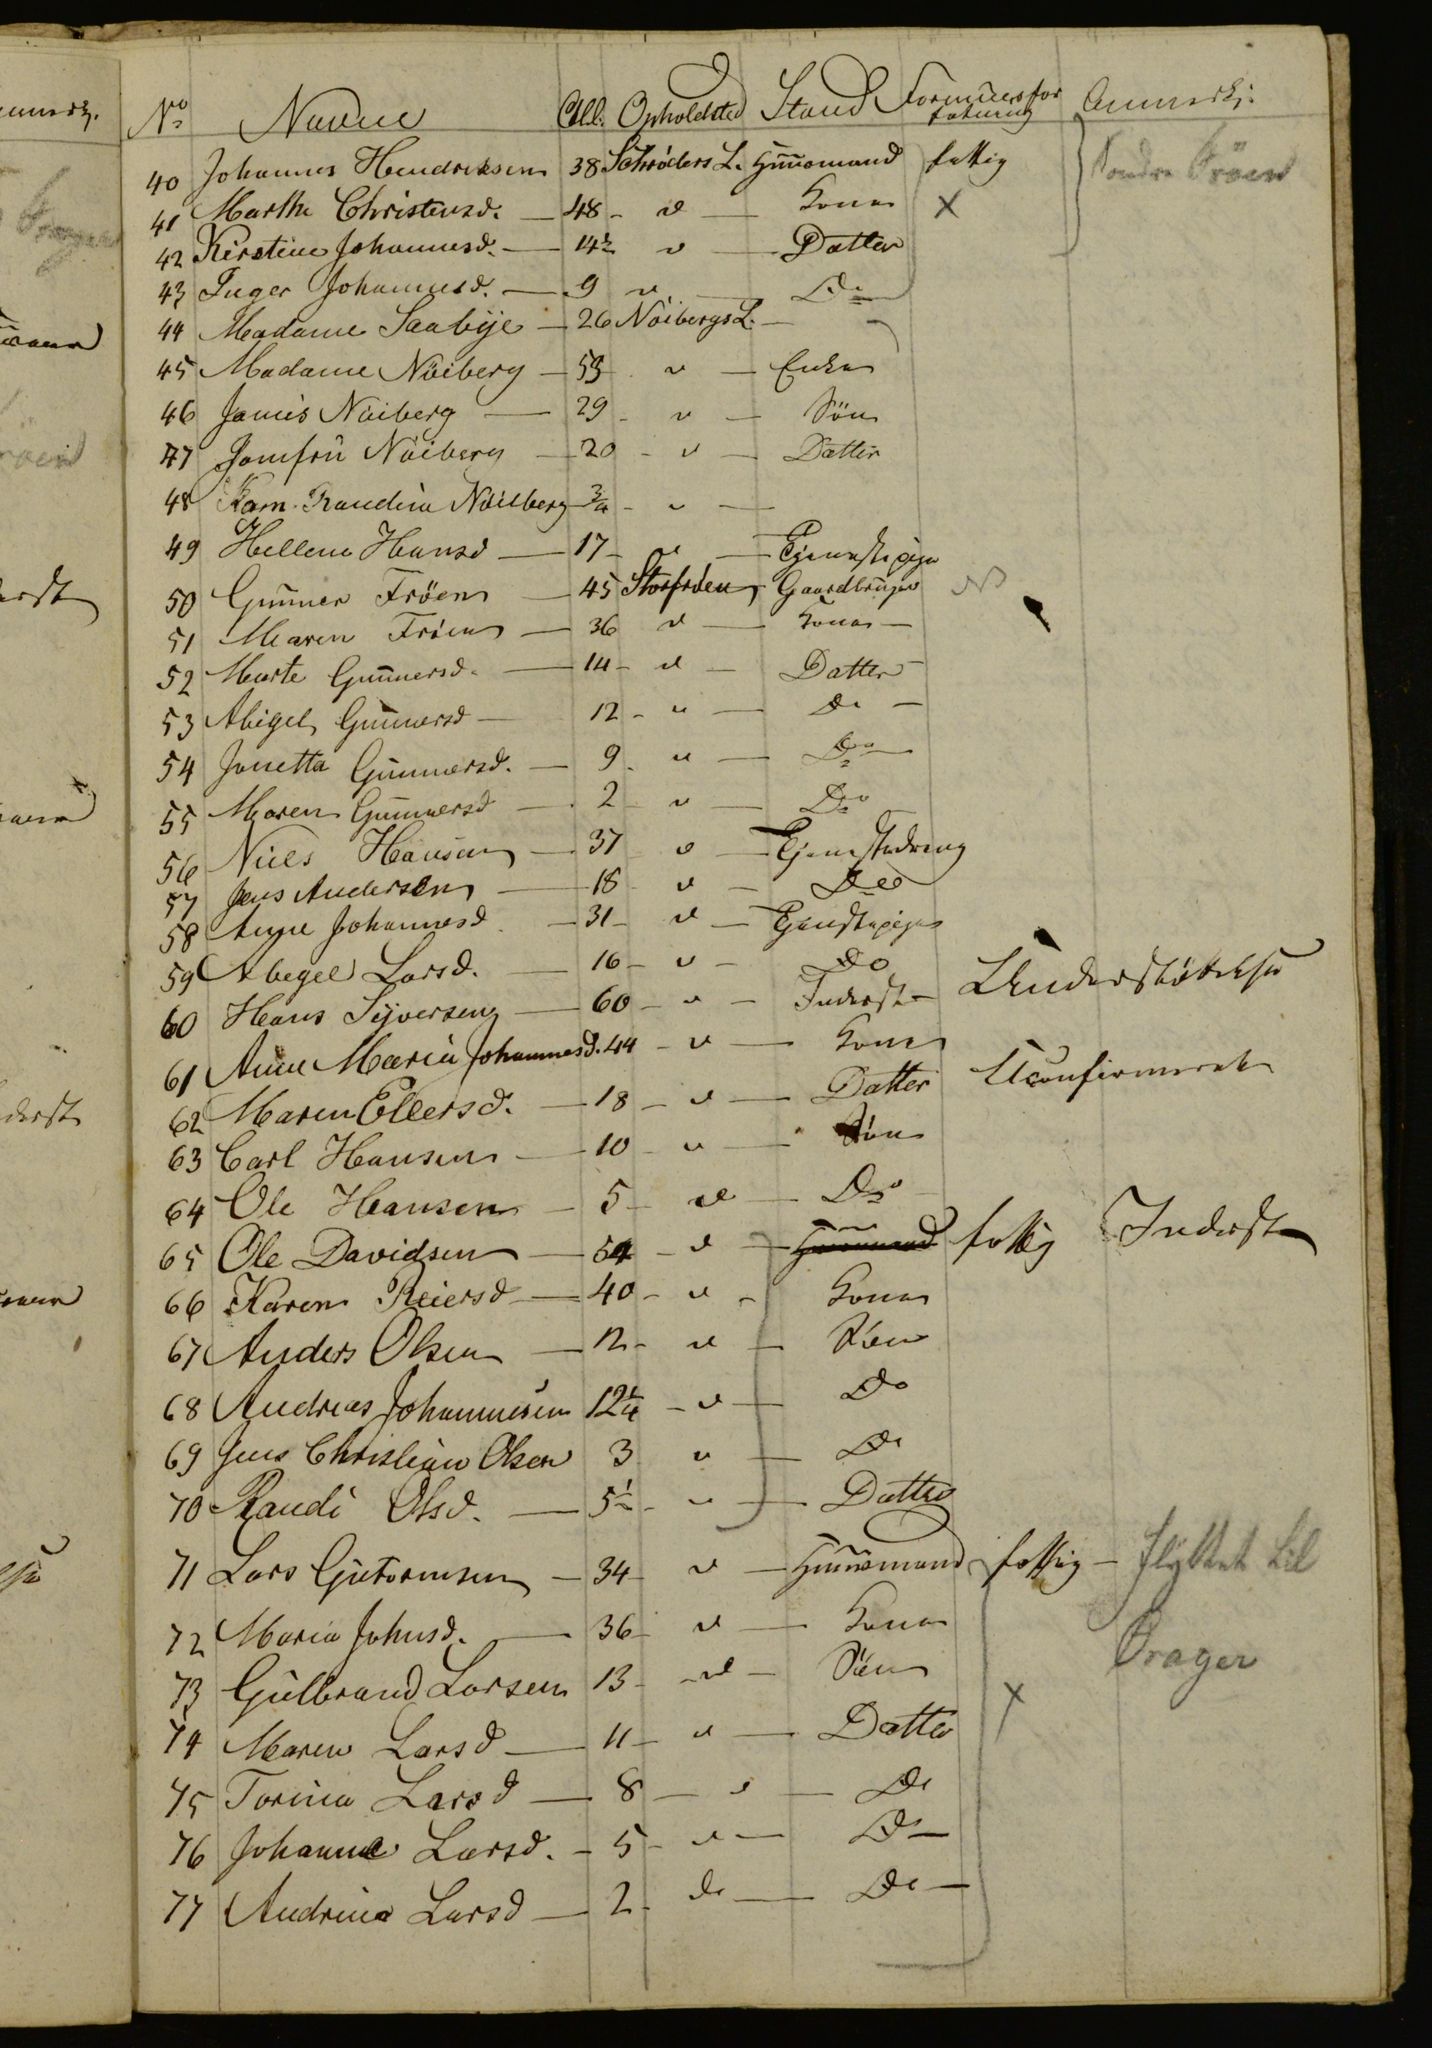 No Navne Ald. Opholdsted Stand Formuesfor Anmerk:
fatning
40 Johannes Hendriksen 38 Schröders L. Huusmand fattig Söndre Fröen
41 Marthe Christensd. — 48 - d — Kone X
42 Kirstine Johannesd. — 14½ d — Datter
43 Inger Johannesd. — 9 d — Do
44 Madame Saabye — 26 Nöibergs L. —
45 Madame Nöiberg — 53 d — Enke
46 Janus Nöiberg — 29 - d — Sön
47 Jomfru Nöiberg — 20 - d — Datter
48 Kam. Randine Nöiberg ¾ - d —
49 Hellene Hansd — 17 - d — Tjenestepige
50 Gunner Fröen — 45 Storfröen Gaardbruger
51 Maren Fröen — 36 d — Kone —
52 Marte Gunnersd. — 14 - d — Datter
53 Abigel Gunnersd — 12 - d — Do —
54 Jonetta Gunnersd. — 9 - d — Do
55 Maren Gunnersd — 2 d — Do
56 Niels Hansen — 37 d — Tjenestedreng
57 Jens Andersen — 18 d — Do
58 Anne Johannesd. — 31 - d — Tjenstepige
59 Abegel Larsd. — 16 - d — Do
60 Hans Syversen — 60 - d — Inderst — Understöttelse
61 Anne Maria Johannesd. 44 - d — Kone
62 Maren Ellersd. — 18 - d — Datter Uconfirmeret
63 Carl Hansen — 10 - d — Sön
64 Ole Hansen — 5 - d — Do
65 Ole Davidsen — 54 - d — Huusmand fattig Inderst
66 Karen Reiersd — 40 - d - Kone
67 Anders Olsen — 12 - d — Sön
68 Andreas Johannesen 12¼ - d — Do
69 Jens Christian Olsen 3 d — Do
70 Randi Olsd. — 5½ - d — Datter
71 Lars Gutormsen — 34 d — Huusmand fattig — flyttet til
72 Maria Johnsd. — 36 - d — Kone Orager
73 Gulbrand Larsen 13 - d — Sön X
74 Maren Larsd — 11 - d — Datter
75 Torine Larsd — 8 — d — Do
76 Johanne Larsd. - 5 - d — Do —
77 Andrine Larsd — 2 - do — Do —